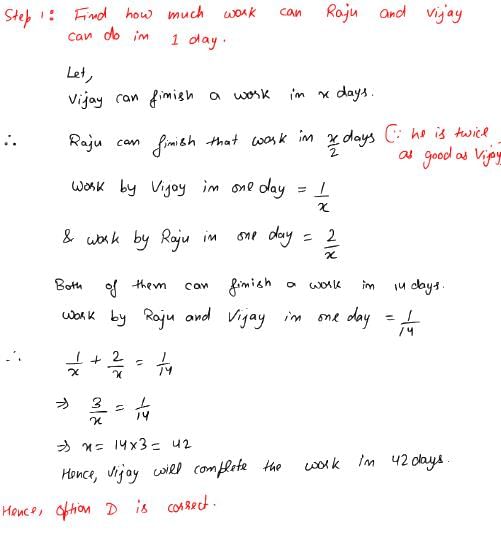 Step 1: Find how much work can Raju and Vijay
can do in 1 day.
Let,
Vijay can finish a work in x days.
∴ Raju can finish that work in x/2 days (∵ he is twice
as good as Vijay)
Work by Vijay in one day = 1/x
& work by Raju in one day = 2/x
Both of them can finish a work in 14 days.
Work by Raju and Vijay in one day = 1/14
∴ 1/x + 2/x = 1/14
⇒ 3/x = 1/14
⇒ x = 14×3 = 42
Hence, Vijay will complete the work in 42 days.
Hence, option D is correct.